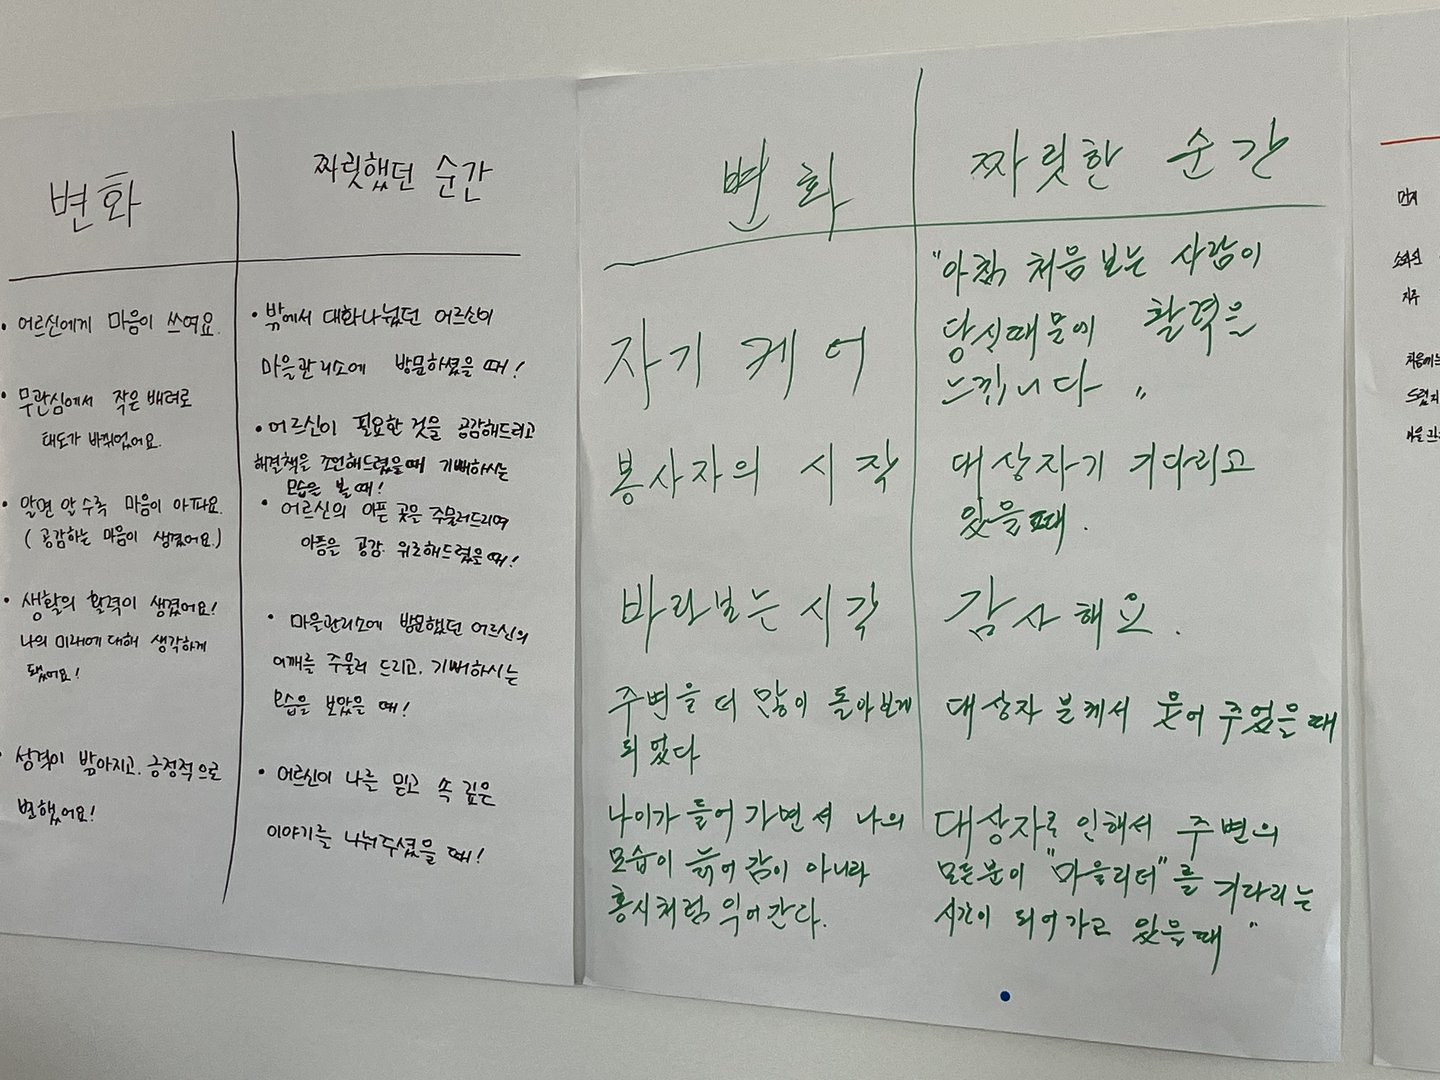 변화
짜릿했던 순간
• 어르신에게 마음이 쓰여요.
• 무관심에서 작은 배려로
태도가 바뀌었어요.
• 알면 알수록 마음이 아파요.
( 공감하는 마음이 생겼어요.)
• 생활의 활력이 생겼어요!
나의 미래에 대해 생각하게
됐어요!
• 성격이 밝아지고, 긍정적으로
변했어요!
• 밖에서 대화나눴던 어르신이
마을관리소에 방문하셨을 때!
• 어르신이 필요한 것을 공감해드리고
해결책을 조언해드렸을때 기뻐하시는
모습을 볼 때!
• 어르신의 아픈 곳을 주물러드리며
아픔을 공감. 위로해드렸을때!
• 마을관리소에 방문했던 어르신의
어깨를 주물러 드리고, 기뻐하시는
모습을 보았을 때!
• 어르신이 나를 믿고 속 깊은
이야기를 나눠주셨을 때!
변화
짜릿한 순간
자기 케어
봉사자의 시작
바라보는 시각
주변을 더 많이 돌아보게
되었다
나이가 들어 가면서 나의
모습이 늙어 감이 아니라
홍시처럼 익어간다.
"아침, 처음 보는 사람이
당신때문에 활력을
느낍니다"
대상자가 기다리고
있을때.
감사해요.
대상자 분께서 웃어 주었을때
대상자로 인해서 주변의
모든분이 "마을리더"를 기다리는
시간이 되어가고 있을때"
드렸지